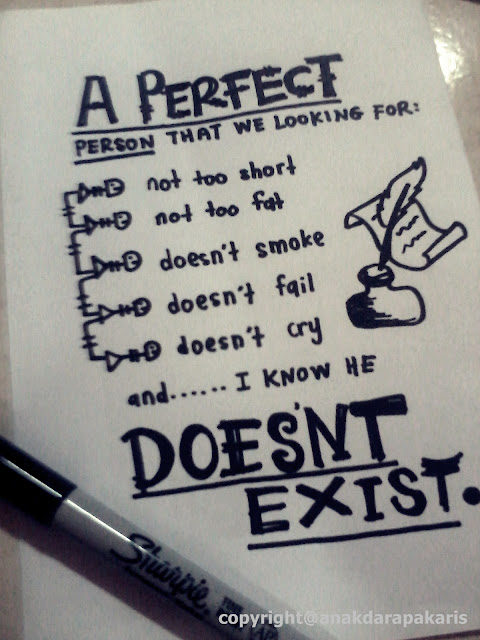 A PERFECT
PERSON THAT WE LOOKING FOR:
not too short
not too fat
doesn't smoke
doesn't fail
doesn't cry
and...... I KNOW HE
DOES'NT
EXIST.
Sharpie
copyright@anakdarapakaris